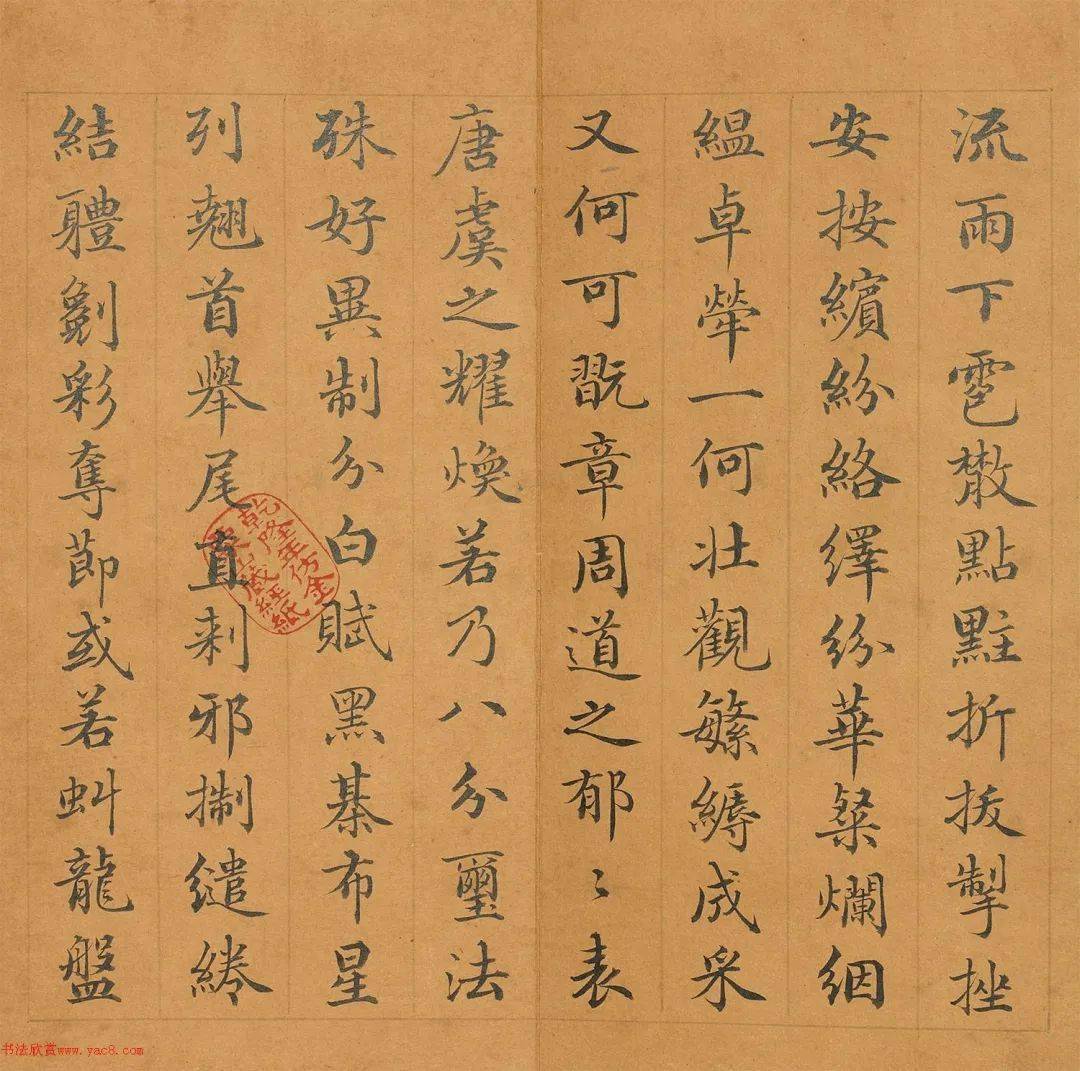 流雨下雹散點點黈折拔掣挫
安按繽紛絡繹紛華粲爛絪
縕卓犖一何壯觀繁縟成采
又何可翫章周道之郁〻表
唐虞之耀煥若乃八分璽法
殊好異制分白賦黑棊布星
列翹首舉尾直刺邪掣繾綣
結體劖彩奪節或若虯龍盤
乾隆年仿金粟山藏經紙
书法欣赏www.yac8.com